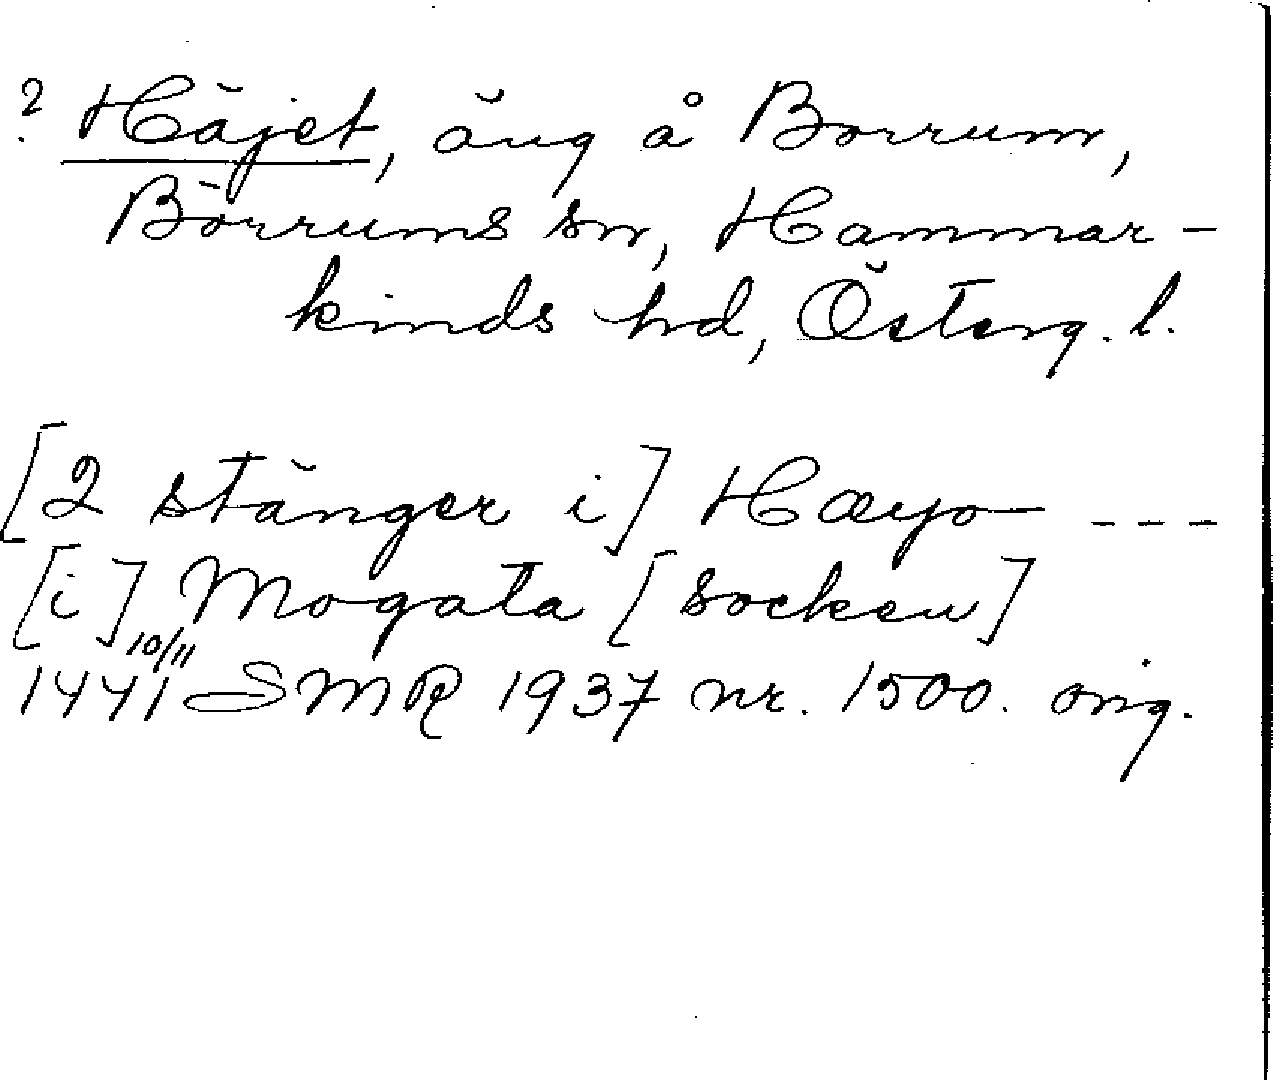 ? Häjet, äng å Borrum,
Börrums sn, Hammar-
kinds hd, Österg. l.
[2 stänger i] Hæyo - - -
[i] Mogata [socken]
1441 10/11 SMR 1937 nr. 1500. orig.